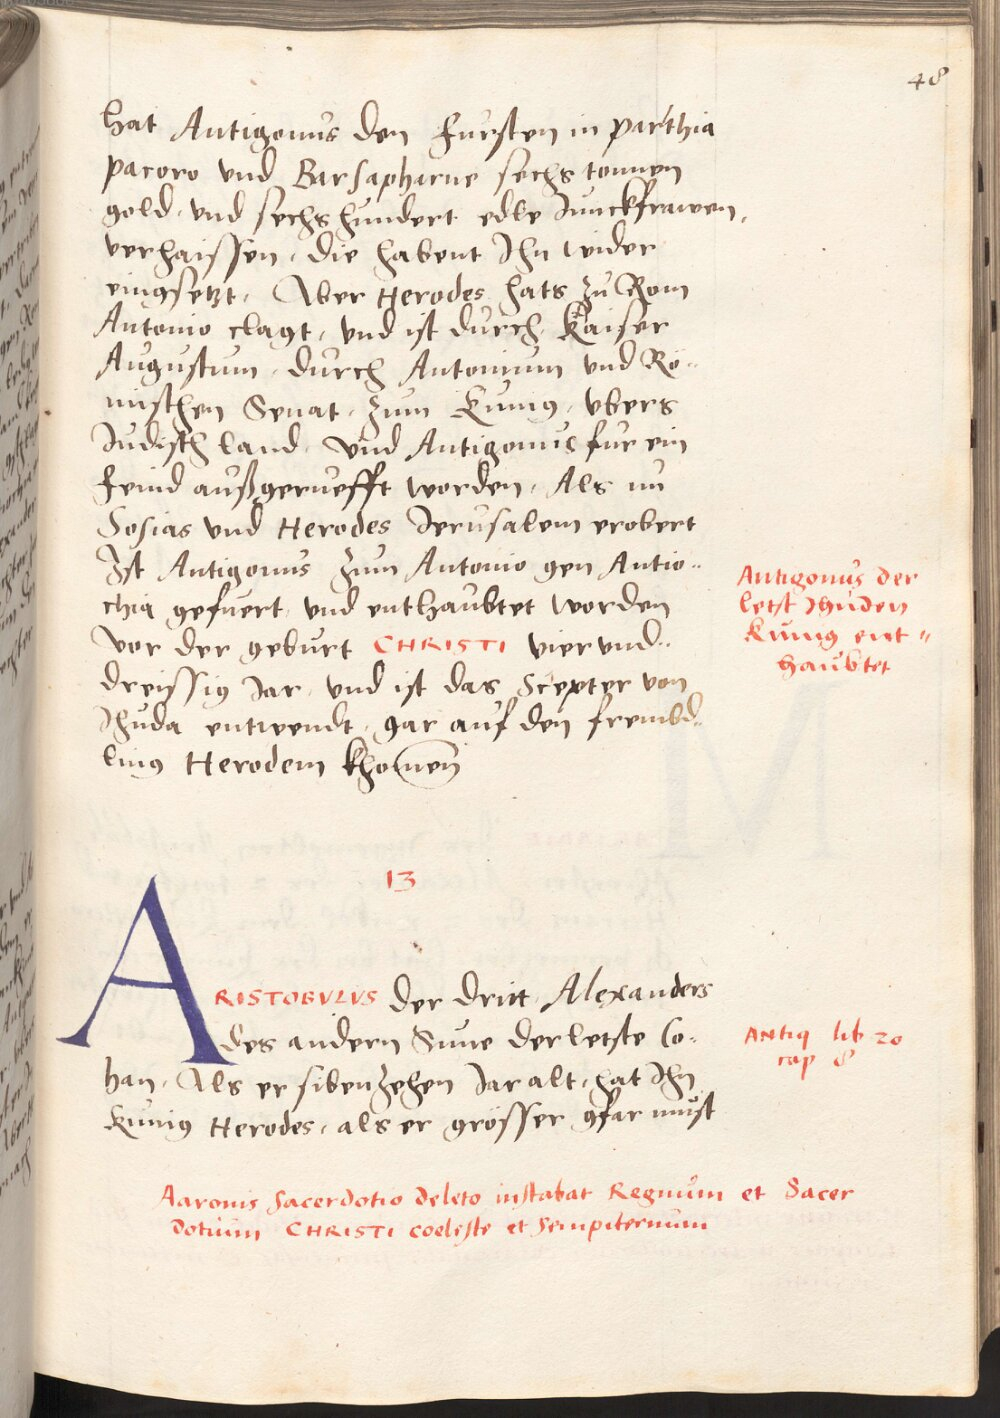 48
hat Antigonus den Fursten in parthia
pacoro vnd Barsapharne sechs tonnen
gold, vnd sechshundert edle Junckfrawen,
verhaissen, die habent Ihn wider
eingsetzt, Aber Herodes hats zu Rom
Antonio clagt, vnd ist durch Kaiser
Augustum, durch Antonium vnd Rö-
mischen Senat, zum Kunig, vbers
Iudisch land, Vnd Antigonus fur ein
feind außgeruefft worden, Als nu
Sosias vnd Herodes Ierusalem erobert
Ist Antigonus zum Antonio gen Antio-
chia gefuert, vnd enthaubtet worden
Vor der geburt CHRISTI vierund-
dreissig Jar, vnd ist das Scepter von
Ihuda entwendt, gar auf den frembd-
ling Herodem khomen
Antigonus der
letst Ihuden
Kunig ent-
haubtet
13
ARISTOBVLVS der dritt, Alexanders
des andern Sune der letste Co-
han, Als er sibenzehen Jar alt, hat Ihn
Kunig Herodes, als er grösser gfar must
ANTIQ lib 20
cap 8
Aaronis Sacerdotio deleto instabat Regnum et Sacer
dotium CHRISTI coeleste et sempiternum